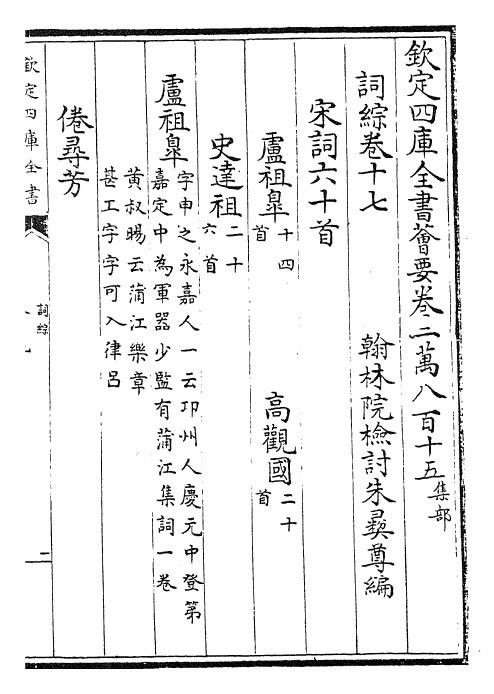 欽定四庫全書薈要卷二萬八百十五集部
詞綜卷十七　翰林院檢討朱彞尊編
宋詞六十首
盧祖臯十四首　高觀國二十首
史達祖二十六首
盧祖臯字申之永嘉人一云邛州人慶元中登第
嘉定中為軍器少監有蒲江集詞一卷
黄叔暘云蒲江樂章
甚工字字可入律呂
倦尋芳
欽定四庫全書
詞綜